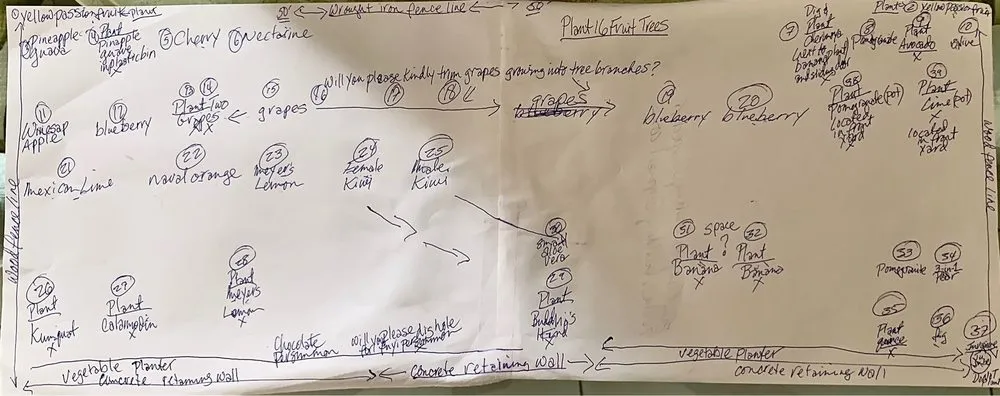 ① yellow passion fruit plant
50' ← Wrought iron fence line → 50'
Plant 16 Fruit Trees
Plant ② yellow passion fruit
③ Pineapple guava
④ Plant Pinapple guava in plastic bin X
⑤ Cherry
⑥ Nectarine
⑦ Dig & Plant
next to plant banana
⑧ Pomgranate
⑨ Plant Avocado X
⑩ Olive
Will you please kindly trim grapes growing into tree branches?
⑪ Winesap Apple
⑫ blueberry
⑬ ⑭ Plant Two Grapes X X
⑮ grapes
⑯
⑰
⑱
grapes
⑲ blueberry
⑳ blueberry
38 Plant Pomgranate (pot) located in front yard X
39 Plant Lime (pot) X located in front yard
21 Mexican Lime
22 naval orange
23 Meyer's Lemon
24 Female Kiwi
25 Male Kiwi
wood fence line
wood fence line
26 Plant Kumquat X
27 Plant Calamondin X
28 Plant Meyer's Lemon X
30 Small aloe vera
29 Plant Buddha's Hand X
31 Plant Banana X
space ?
32 Plant Banana X
33 Pomgranate
34 3 in 1 Pear
35 Plant quince X
36 Fig
37
Chocolate Persimmon
will you please dig hole for Fuyi Persimmon
vegetable planter
concrete retaining wall
concrete retaining wall
vegetable planter
concrete retaining wall